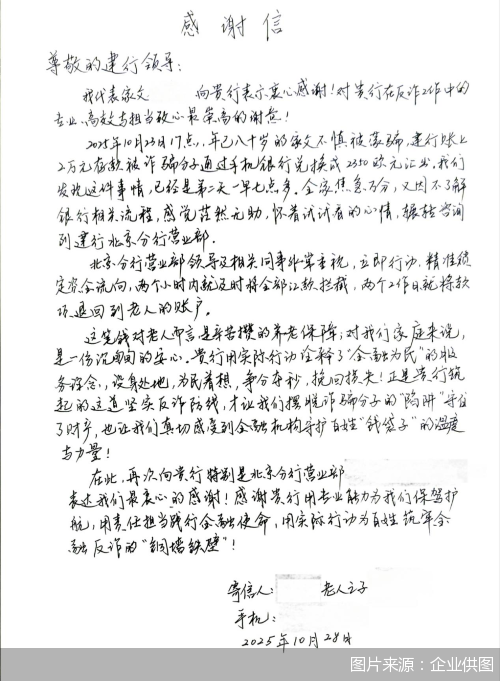 感谢信
尊敬的建行领导：
我代表家父 向贵行表示衷心感谢！对贵行在反诈工作中的
专业、高效与担当致以最崇高的谢意！
2025年10月23日17点，年已八十岁的家父不慎被蒙骗，建行账上
2万元存款被诈骗分子通过手机银行兑换成2350欧元汇出，我们
发现这件事情，已经是第二天一早七点多。全家焦急万分，又因不了解
银行相关流程，感觉茫然无助，怀着试试看的心情，辗转咨询
到建行北京分行营业部。
北京分行营业部领导及相关同事非常重视，立即行动，精准锁
定资金流向，两个小时内就及时将全部汇款拦截，两个工作日就将款
项退回到老人的账户。
这笔钱对老人而言是辛苦攒的养老保障；对我们家庭来说，
是一份沉甸甸的安心。贵行用实际行动诠释了“金融为民”的服
务理念，设身处地，为民着想，争分夺秒，挽回损失！正是贵行筑
起的这道坚实反诈防线，才让我们摆脱诈骗分子的“陷阱”守住
了财产，也让我们真切感受到金融机构守护百姓“钱袋子”的温度
与力量！
在此，再次向贵行特别是北京分行营业部
表达我们最衷心的感谢！感谢贵行用专业能力为我们保驾护
航，用责任担当践行金融使命，用实际行动为百姓筑牢金
融反诈的“铜墙铁壁”！
寄信人： 老人之子
手机：
2025年10月28日
图片来源：企业供图